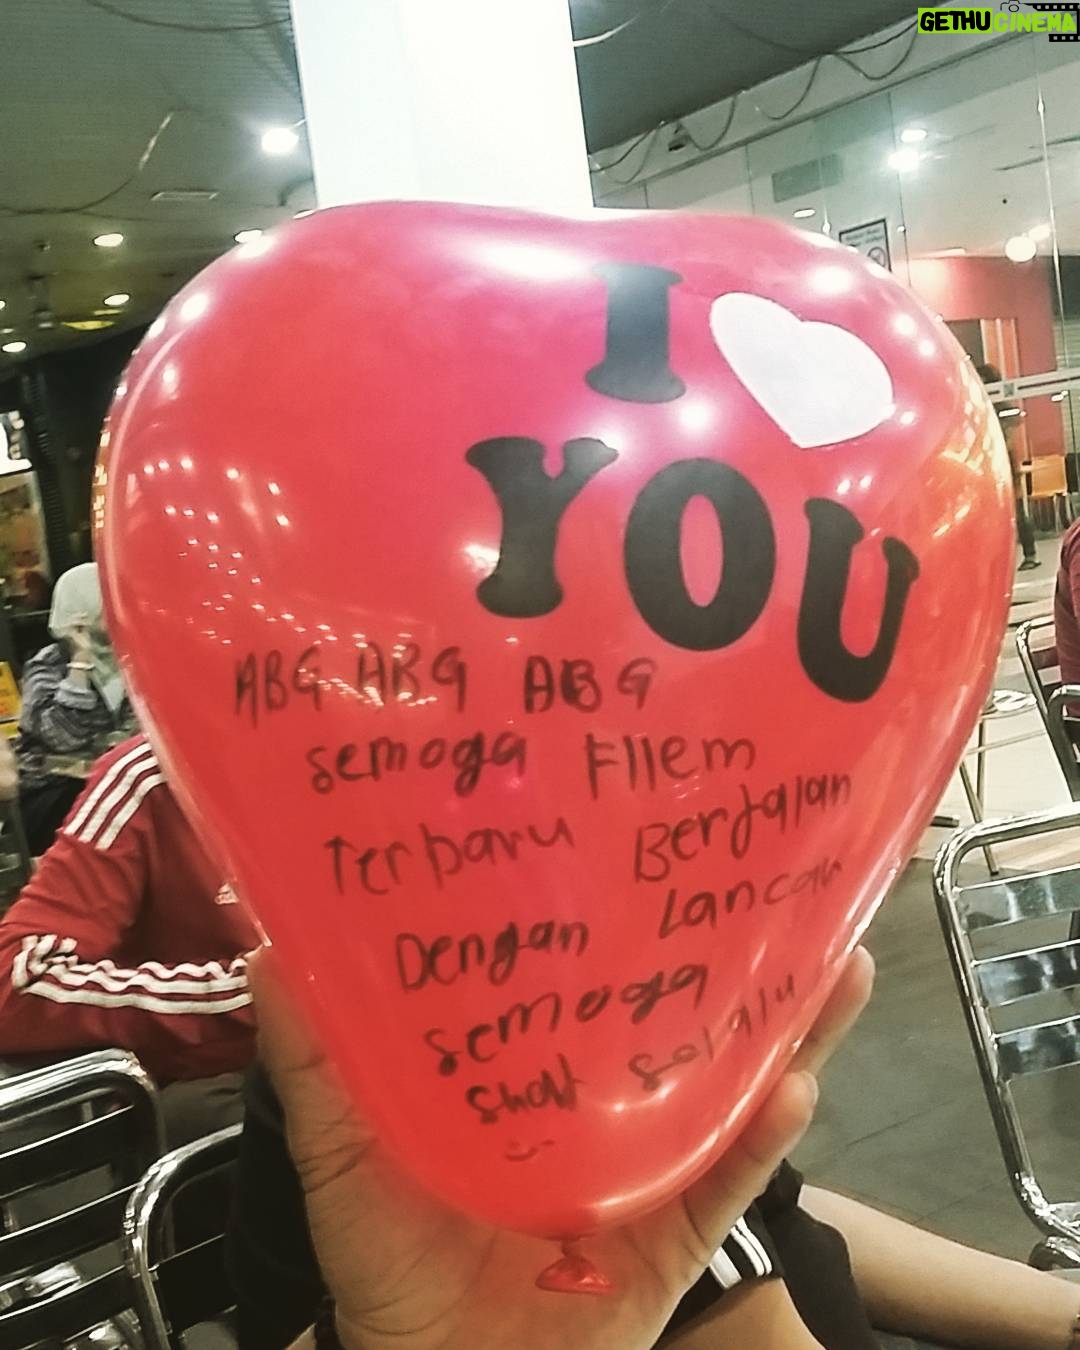 GETHU CINEMA
I
YOU
ABG ABG ABG
semoga FIlem
Terbaru Berjalan
Dengan Lancar
semoga
selalu